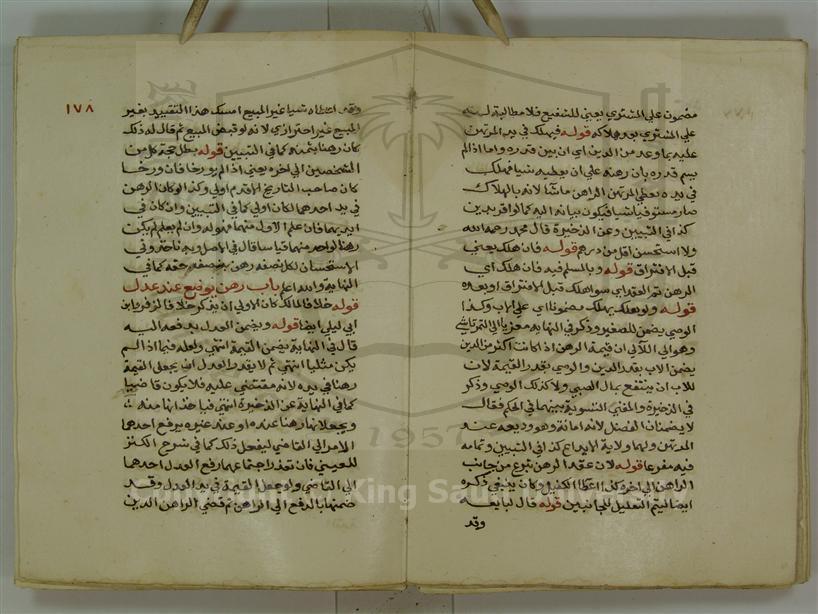 مضمون علي المشتري يعني للشفيع فلا مطالبة له
علي المشتري بعد هلاكه قوله فيهلك في يد المرتهن
عليه بما وعد من الدين اي ان بين قدره واما اذا لم
يبين قدره بان رهنه علي ان يعطيه شيا فهلك
في يده يعطي المرتهن الراهن ماشا لانه بالهلاك
صار مستوفيا لشيا فيكون بيانه اليه كما لو اقر بدين
كذا في التبيين وعن الذخيرة قال محمد رحمه الله
ولا استحسن اقل من درهم قوله فان هلك يعني
قبل الافتراق قوله وبالمسلم فيه فان هلك اي
الرهن تم العقد اي سوا هلك قبل الافتراق او بعده
قوله ولو هلك يهلك مضمونا اي علي الاب وكذا
الوصي يضمن للصغير وذكر في النهاية معزيا الي التمرتاشي
وهو الي اللآلي ان قيمة الرهن اذا كانت اكثر من الدين
يضمن الاب بقدر الدين والوصي بقدر القيمة لان
للاب ان ينتفع بمال الصبي ولا كذلك الوصي وذكر
في الذخيرة والمغني التسوية بينهما في الحكم فقال
لا يضمنان الفضل لانه امانة وهو وديعة عند
المرتهن ولهما ولاية الايداع كذا في التبيين وتمامه
فيه مفرعا قوله لان عقد الرهن تبرع من جانب
الراهن الي اخره كذا اعطا الكفيل وكان ينبغي ذكره
ايضا ليتم التعليل للجانبين قوله قال لبايعه
وقد
١٧٨
وقد اعطاه شيا غير المبيع امسك هذا التقييد بغير
المبيع غير احترازي لانه لو قبض المبيع ثم قال له ذلك
كان رهنا بثمنه كما في التبيين قوله بطل حجة كل من
الشخصين الي اخره يعني اذا لم يورخا فان ورخا
كان صاحب التاريخ الاقدم اولي وكذا لو كان الرهن
في يد احدهما كان اولي كما في التبيين وان كان في
ايديهما فان علم الاول منهما فهو له وان لم يعلم لم يكن
رهنا لواحد منهما قياسا قال في الاصل وبه ناخذ وفي
الاستحسان لكل نصفه رهن بنصف حقه كما في
النهاية والله اعلم باب رهن يوضع عند عدل
قوله خلافا لمالك كان الاولي ان يذكر خلاف زفر وابن
ابي ليلي ايضا قوله ويضمن العدل بدفعه اليه
قال في النهاية يضمن القيمة انتهي ولعله فيما اذا لم
يكن مثليا انتهي ثم لا يقدر العدل ان يجعل القيمة
رهنا في يده لانه مقتضي عليه فلا يكون قاضيا
كما في النهاية عن الذخيرة انتهي فياخذانها منه
ويجعلانها رهنا عنده او عند غيره يرفع احدهما
الامر الي القاضي ليفعل ذلك كما في شرح الكنز
للعيني فان تعذر اجتماعهما رفع العدل احدهما
الي القاضي ولو جعل القيمة في يد العدل وقد
ضمنها بالدفع الي الراهن ثم قضي الراهن الدين